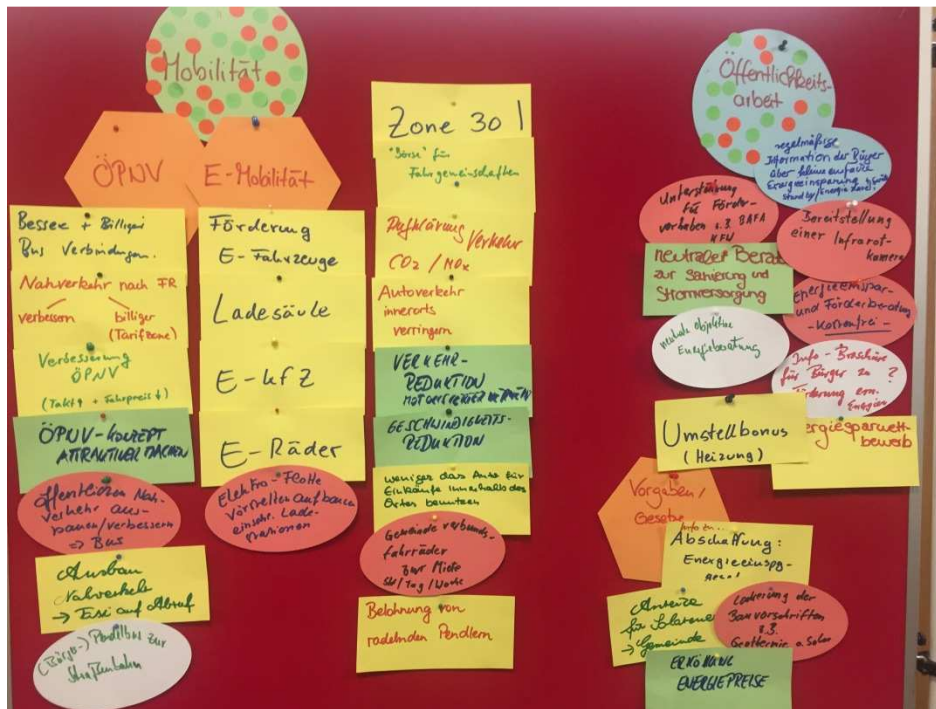 Mobilität
ÖPNV
Bessere + Billigere
Bus Verbindungen.
Nahverkehr nach FR
verbessern billiger
(Tarifzone)
Verbesserung
ÖPNV
(Takt↑ + Fahrpreis↓)
ÖPNV-KONZEPT
ATTRAKTIVER MACHEN
öffentlichen Nah-
verkehr aus-
bauen/verbessern
⇒ Bus
Ausbau
Nahverkehr
→ Taxi auf Abruf
(Bürger-) Pendelbus zur
Straßenbahn
E-Mobilität
Förderung
E-Fahrzeuge
Ladesäule
E-kfZ
E-Räder
Elektro-Flotte
aufbauen
einschl. Lade-
stationen
Zone 30!
"Börse" für
Fahrgemeinschaften
Aufklärung Verkehr
CO2 / NOx
Autoverkehr
innerorts
verringern
VERKEHR-
REDUKTION
GESCHWINDIGKEITS-
REDUKTION
weniger das Auto für
Einkäufe innerhalb des
Ortes benutzen
Gemeinde verbunds-
fahrräder
zur Miete
Std/Tag/Woche
Belohnung von
radelnden Pendlern
Öffentlichkeits-
arbeit
regelmäßige
Information der Bürger
über kleine einfache
Energieeinsparung
Unterstützung
für Förder-
vorhaben z.B. BAFA
KFW
Bereitstellung
einer Infrarot-
kamera
neutrale Berat
zur Sanierung und
Stromversorgung
Energieeinspar-
und Förderberatung
- Kostenfrei -
neutrale objektive
Energieberatung
Info-Broschüre
für Bürger zu ?
Förderung ern.
Energien
Umstellbonus
(Heizung)
ergiesparwett
bewerb
Vorgaben/
Gesetze
Info zu...
Abschaffung:
Energieeinspg-
Anreize
für Solarene
→ Gemeinde
Lockerung der
Bauvorschriften
z.B.
Geothermie o. Solar
ERHÖHUNG
ENERGIEPREISE